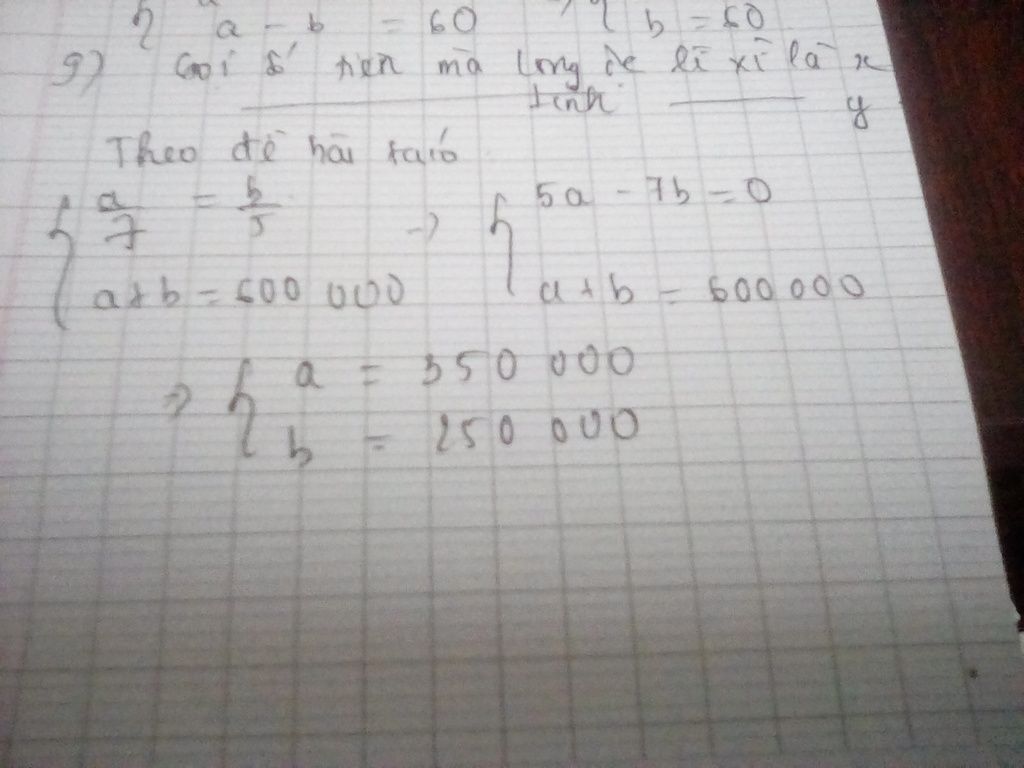 { a - b = 60 { b = 60
9) Gọi số tiền mà Long để lì xì là x
Linh y
Theo đề bài ta có
{ a/7 = b/5 → { 5a - 7b = 0
a + b = 600 000 a + b = 600 000
⇒ { a = 350 000
b = 250 000